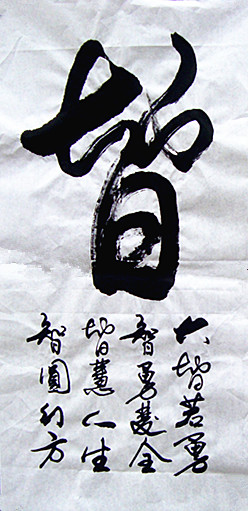 智
大智若勇
智勇雙全
智慧人生
智圓行方